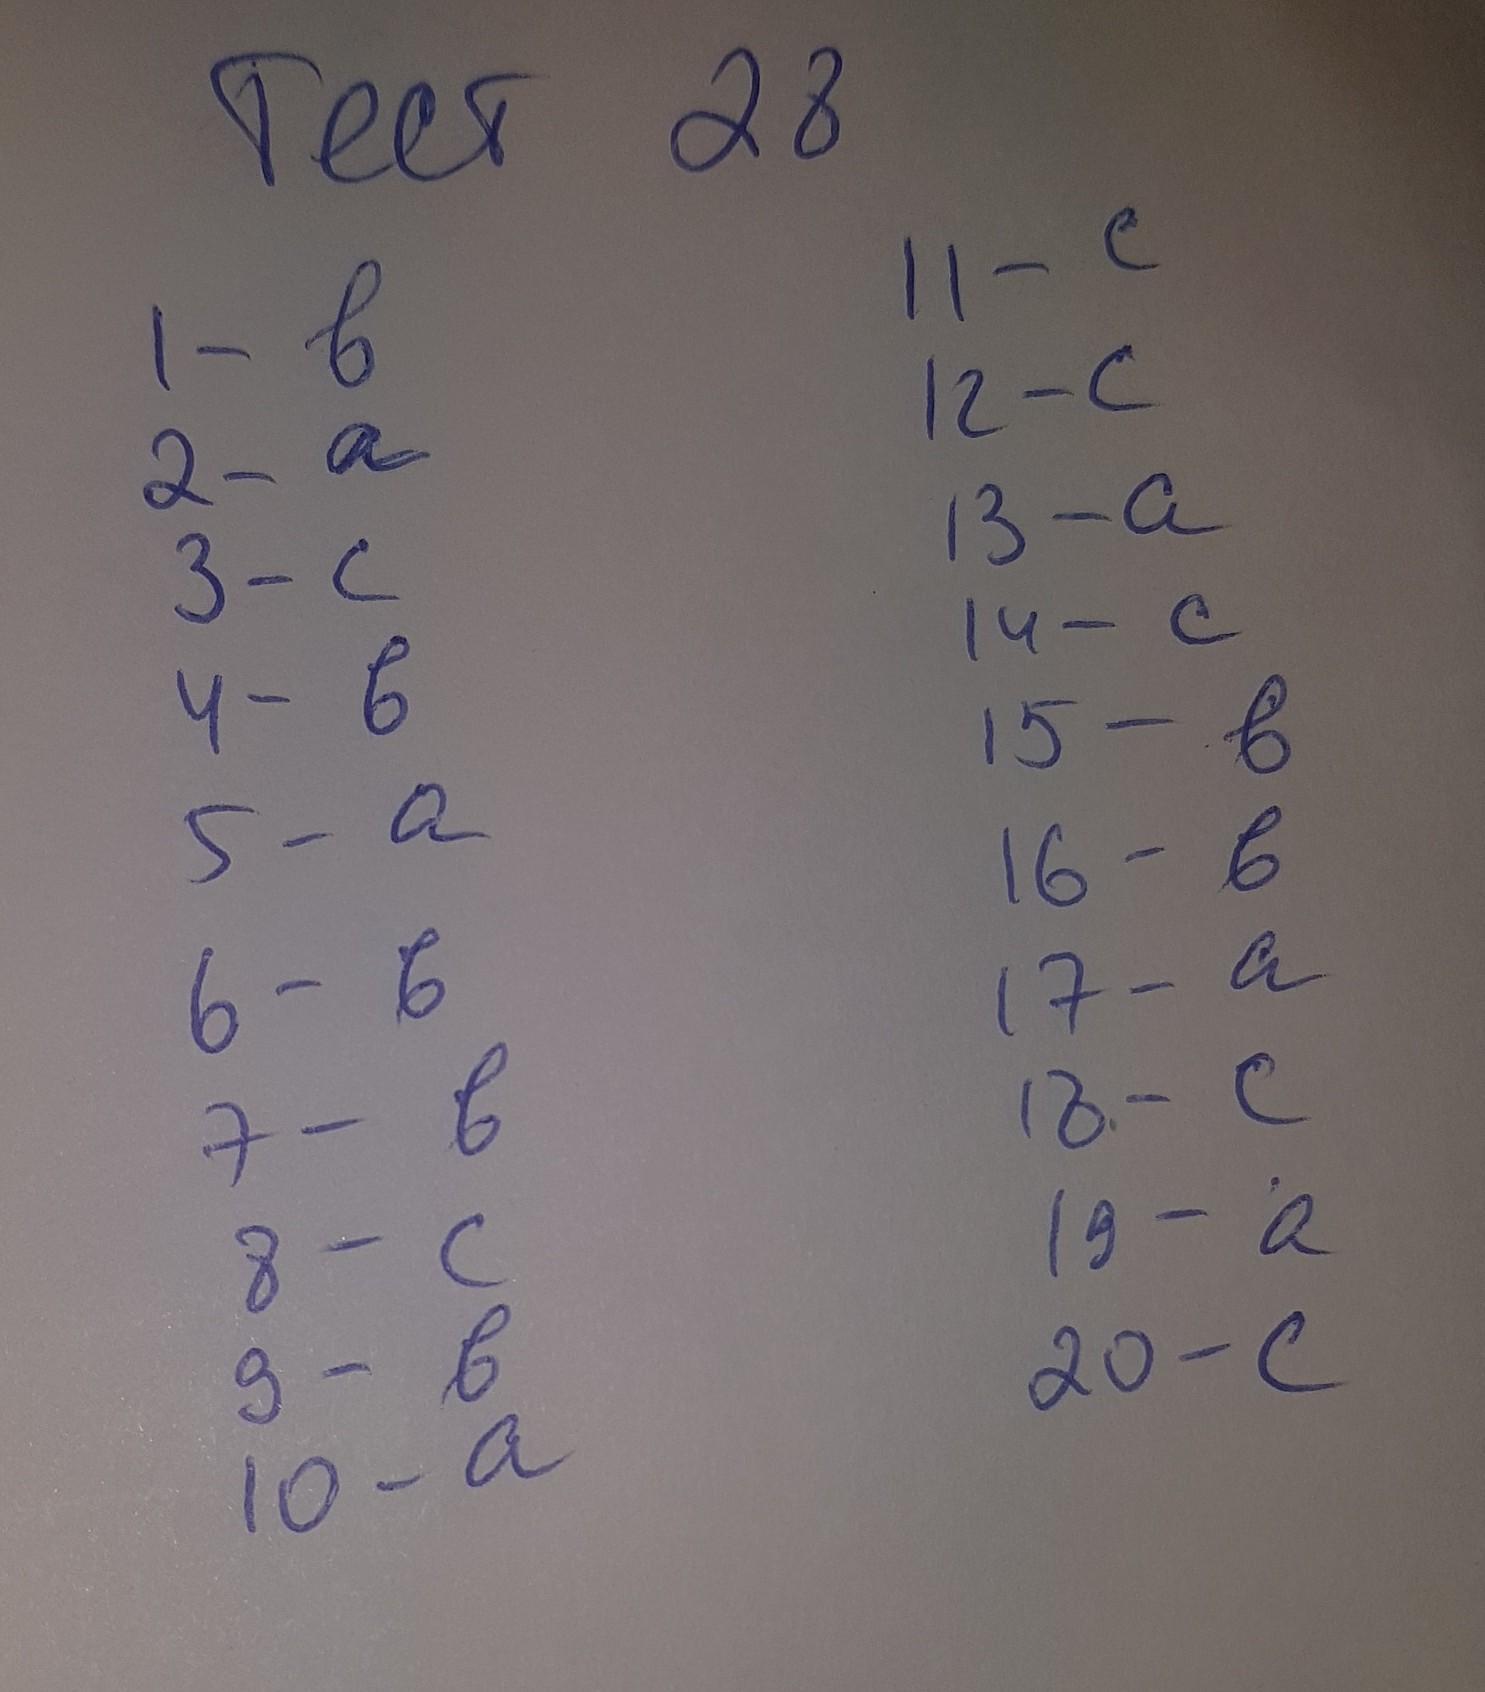 Тест 28
1 - b
2 - a
3 - c
4 - b
5 - a
6 - b
7 - b
8 - c
9 - b
10 - a
11 - c
12 - c
13 - a
14 - c
15 - b
16 - b
17 - a
18 - c
19 - a
20 - c